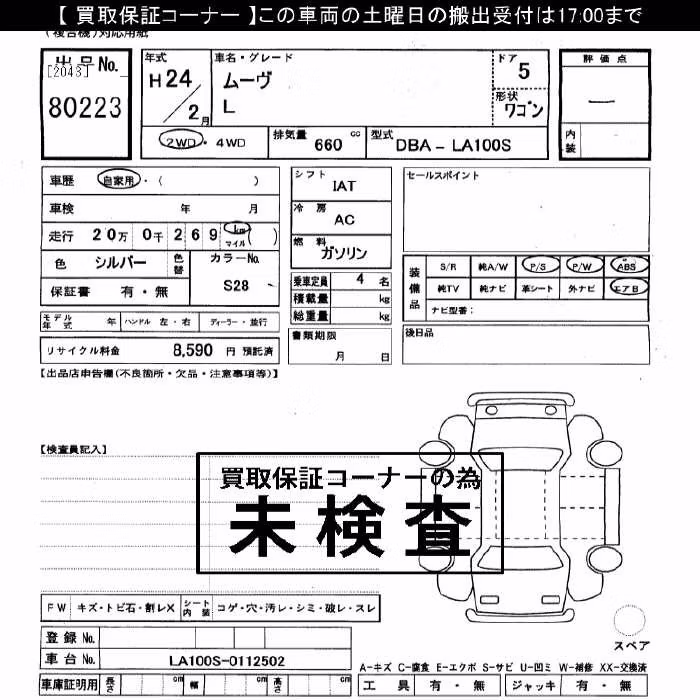 【 買取保証コーナー 】この車両の土曜日の搬出受付は17:00まで
(複合機)対応用紙
出品No.
[2043]
80223
年式
H24
/2月
車名・グレード
ムーヴ
L
ドア
5
形状
ワゴン
評価点
―
内装
2WD・4WD
排気量 660 cc
型式 DBA-LA100S
車歴 自家用・( )
車検 年 月
走行 20万 0千 269 km マイル ( )
色 シルバー 色替 カラーNo. S28
保証書 有・無
シフト IAT
冷房 AC
燃料 ガソリン
乗車定員 4 名
積載量 kg
総重量 kg
セールスポイント
装備品
S/R 純A/W P/S P/W ABS
純TV 純ナビ 革シート 外ナビ エアB
ナビ型番:
モデル年式 年 ハンドル 左・右 ディーラー・並行
リサイクル料金 8,590 円 預託済
書類期限
月 日
後日品
【出品店申告欄(不良箇所・欠品・注意事項等)】
【検査員記入】
買取保証コーナーの為
未検査
FW キズ・トビ石・割レX シート内装 コゲ・穴・汚レ・シミ・破レ・スレ
登録 No.
車台 No. LA100S-0112502
車庫証明用 長さ cm 幅 cm 高さ cm
スペア
A-キズ C-腐食 E-エクボ S-サビ U-凹ミ W-補修 XX-交換済
工具 有・無 ジャッキ 有・無